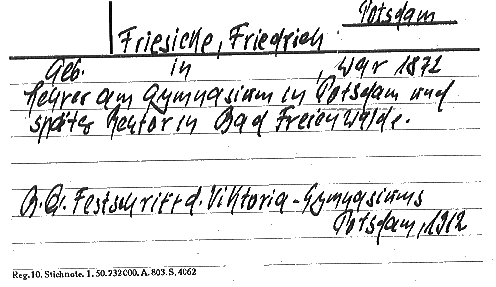 Potsdam
Friesicke, Friedrich
Geb. in , war 1872
Lehrer am Gymnasium in Potsdam und
später Rektor in Bad Freienwalde.
B. Qu. Festschrift d. Viktoria-Gymnasiums
Potsdam, 1912
Reg. 10. Stichnote. 1. 50. 732000. A. 803. S. 4062